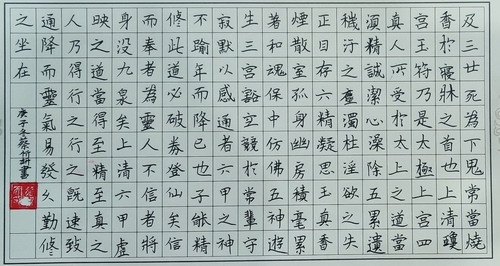 及三廿死為下鬼常燒
香於寢牀之首也上清瓊
宮玉符乃是太極上宮四
真人所受於太上之道當
須精誠潔心澡除五累遺
穢汙之塵濁杜淫欲之失
正目存六精凝思玉真香
煙散室孤身幽房積毫累
著和魂保中仿佛五神遊
生三宮豁空競於常輩守
寂默以感通者六甲之神
不踰年而降已也子能精
修此道必破券登仙矣信
而奉者為靈人不信者將
身沒九泉矣上清六甲虛
映之道當得至精至真之
人乃得行之行之既速致
通降而靈氣易發久勤修
之坐在
庚子冬蔡書